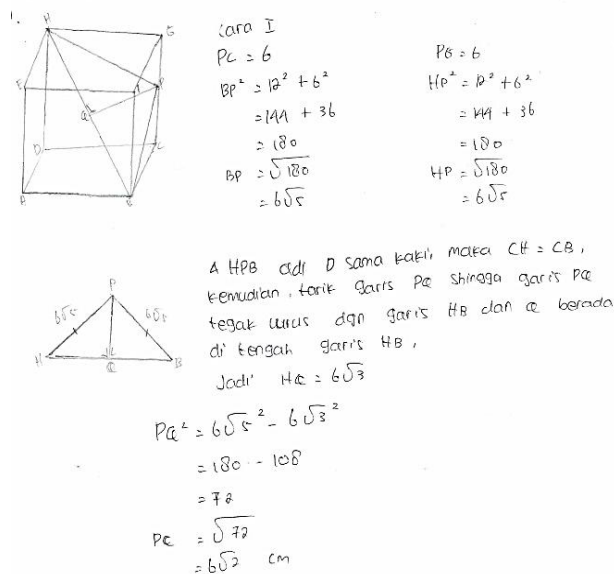 1.
H
G
E
P
Q
D
C
A
B
Cara I
PC = 6
BP² = 12² + 6²
= 144 + 36
= 180
BP = √180
= 6√5
PG = 6
HP² = 12² + 6²
= 144 + 36
= 180
HP = √180
= 6√5
P
6√5
6√5
H
Q
B
Δ HPB adl Δ sama kaki, maka CH = CB,
kemudian, tarik garis PQ shingga garis PQ
tegak lurus dgn garis HB dan Q berada
di tengah garis HB,
Jadi HQ = 6√3
PQ² = 6√5² - 6√3²
= 180 - 108
= 72
PQ = √72
= 6√2 cm